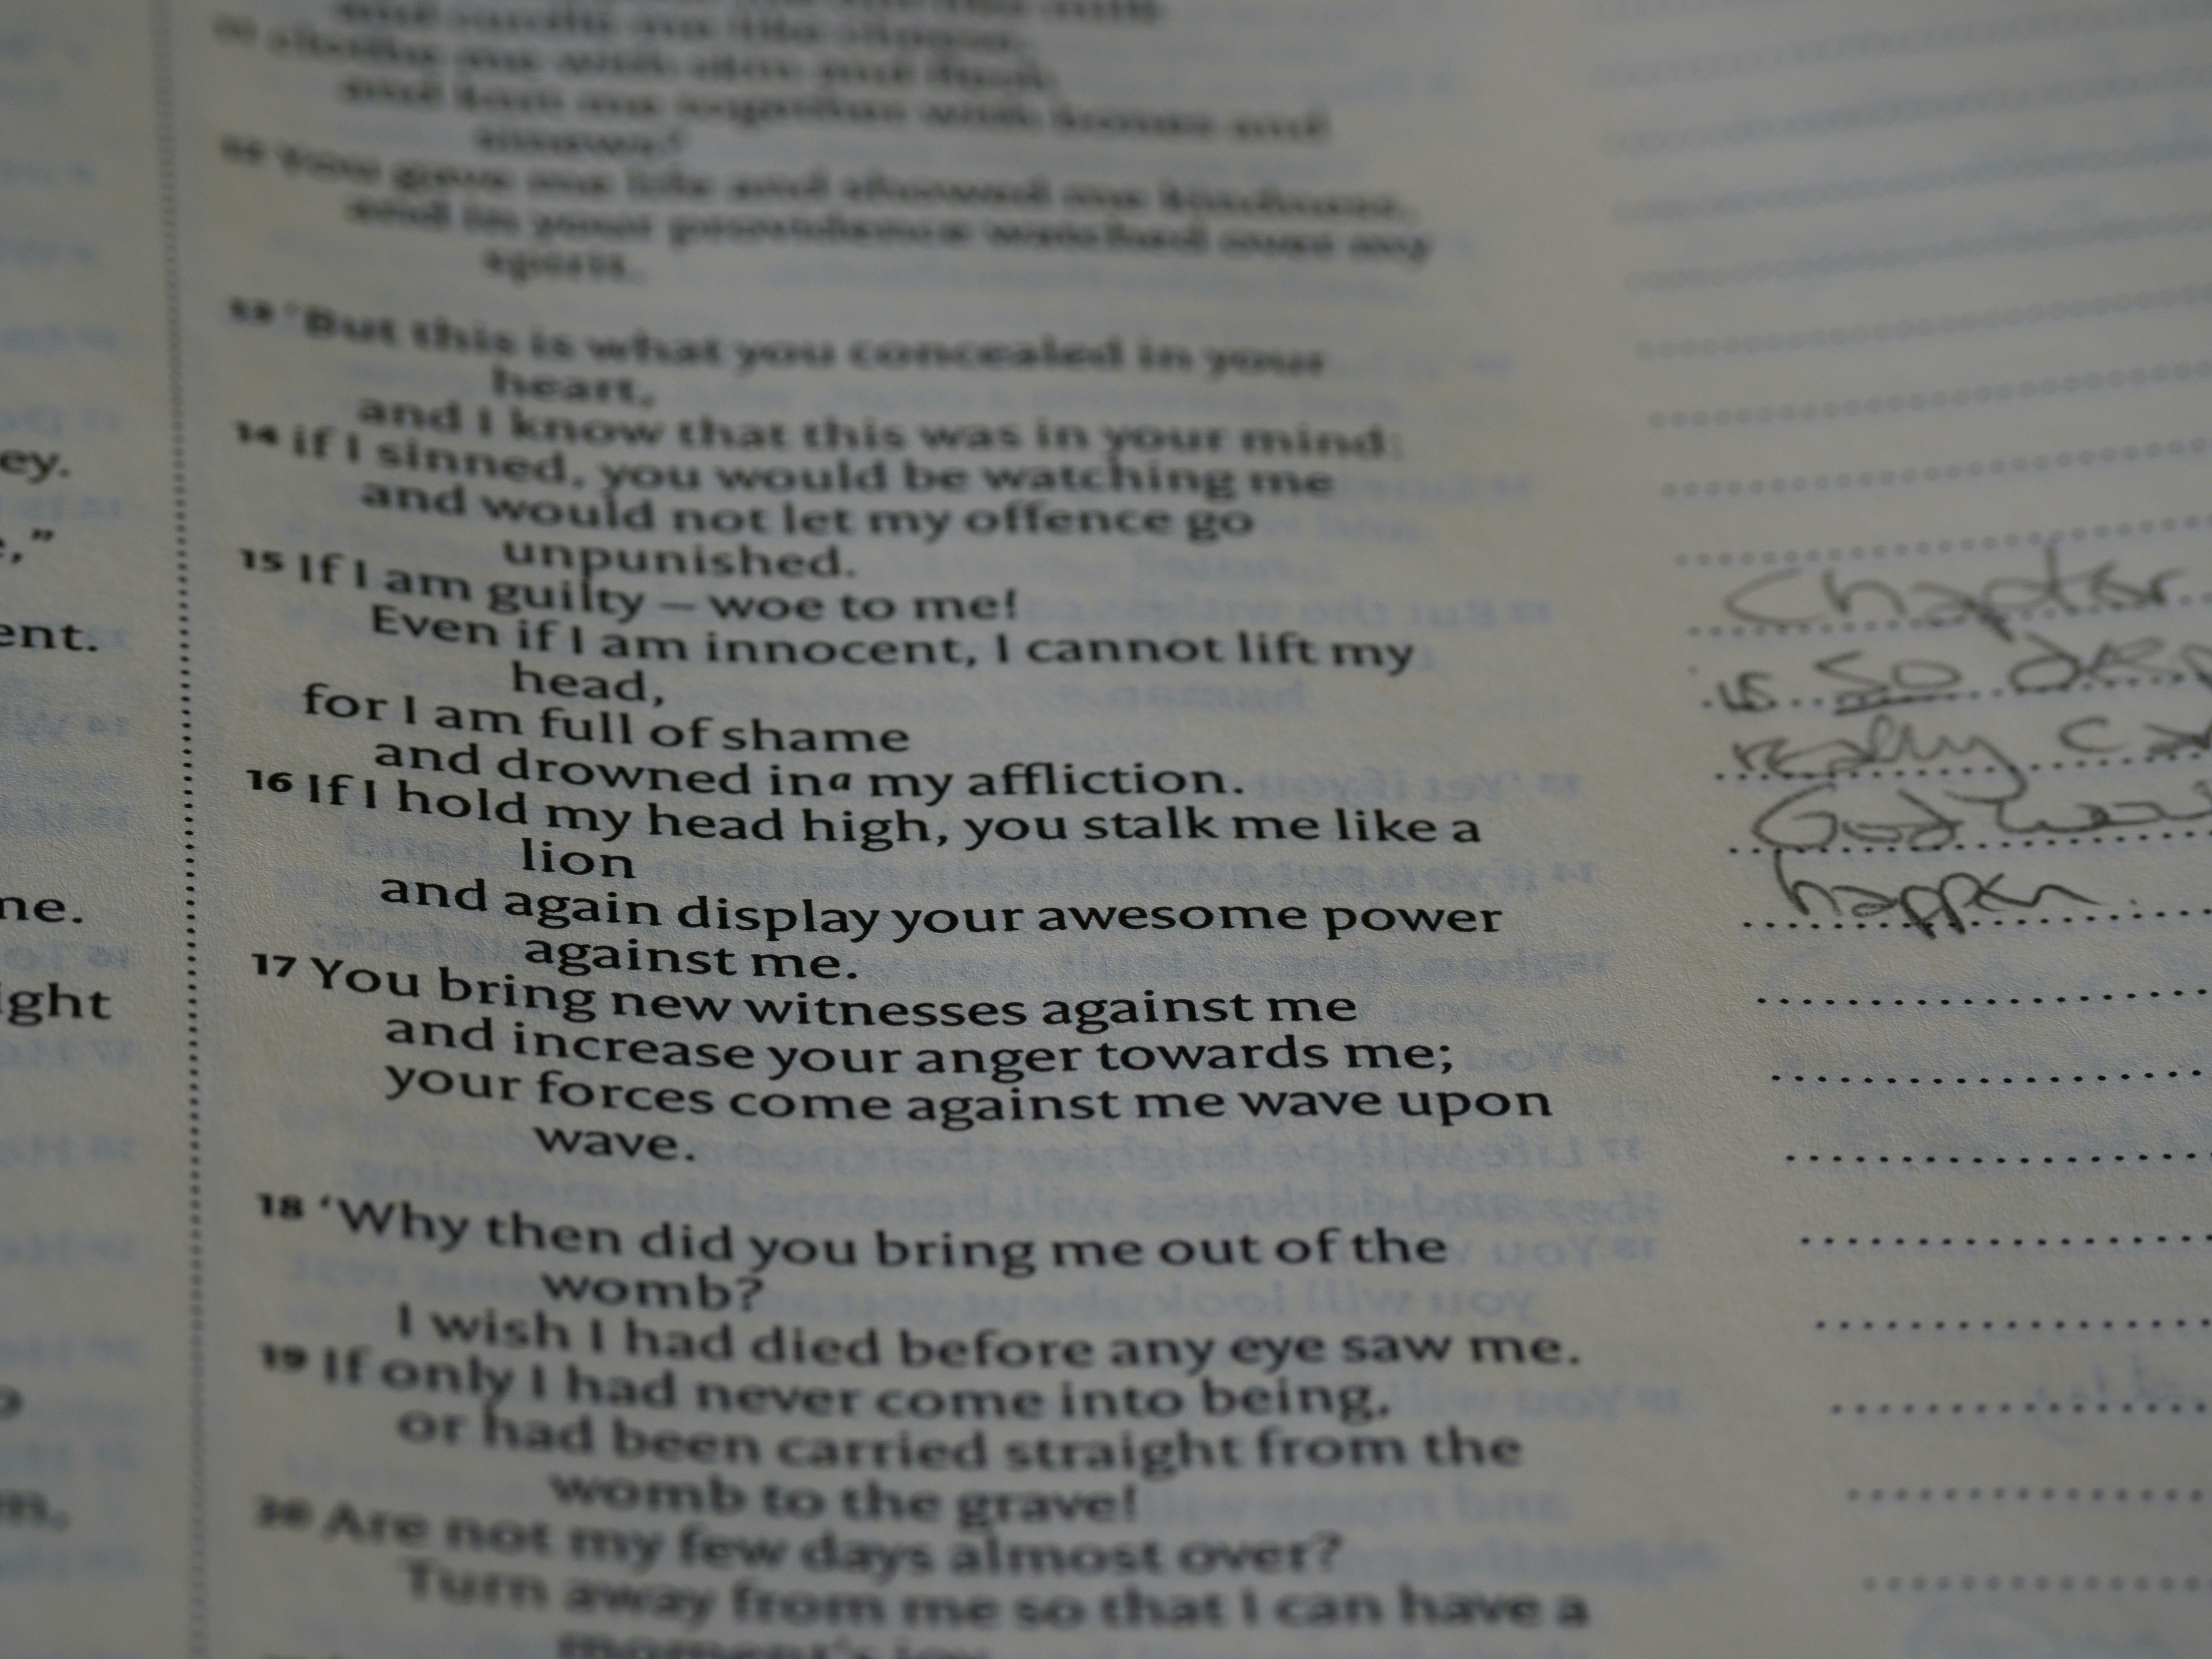 and knit me together with bones and
sinews?
12 You gave me life and showed me kindness,
and in your providence watched over my
spirit.
13 ‘But this is what you concealed in your
heart,
and I know that this was in your mind:
14 if I sinned, you would be watching me
and would not let my offence go
unpunished.
15 If I am guilty – woe to me!
Even if I am innocent, I cannot lift my
head,
for I am full of shame
and drowned in a my affliction.
16 If I hold my head high, you stalk me like a
lion
and again display your awesome power
against me.
17 You bring new witnesses against me
and increase your anger towards me;
your forces come against me wave upon
wave.
18 ‘Why then did you bring me out of the
womb?
I wish I had died before any eye saw me.
19 If only I had never come into being,
or had been carried straight from the
womb to the grave!
20 Are not my few days almost over?
Turn away from me so that I can have a
moment's joy
ey.
,”
ent.
ne.
ight
Chapter
is so
really
God
happen